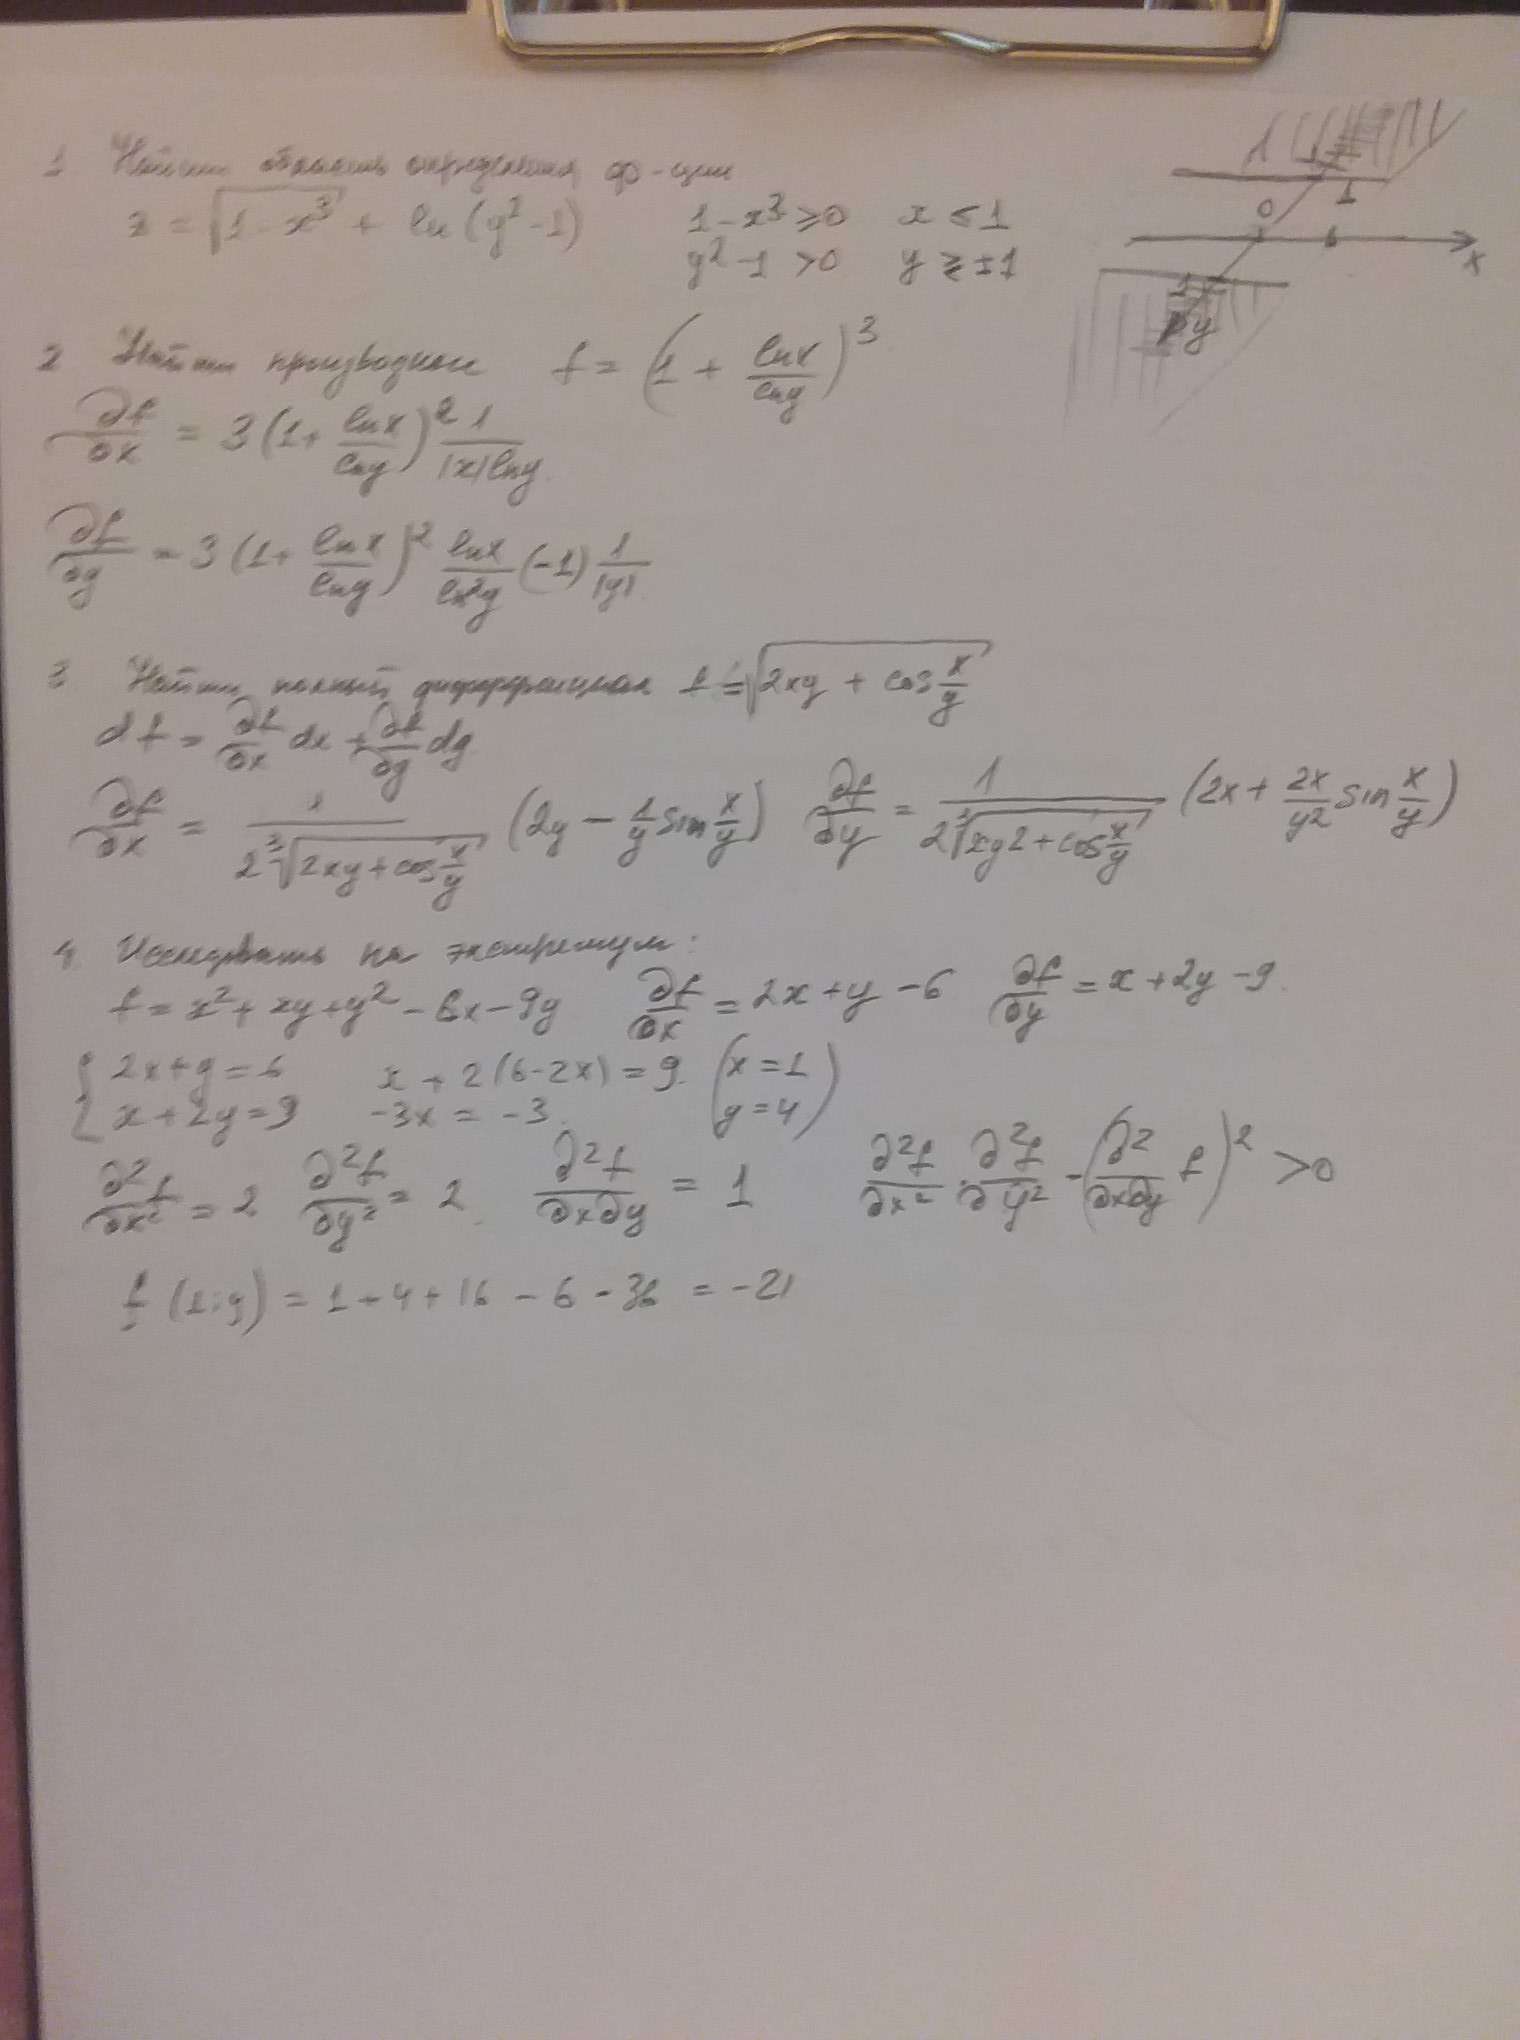 1 Найти область определения ф-ции
z = √(1 - x³) + ln(y² - 1)   1 - x³ ≥ 0   x ≤ 1
y² - 1 > 0   y ≥ ±1
1
1
0
x
1
y
2 Найти производные f = (1 + lnx/lny)³
∂f/∂x = 3(1 + lnx/lny)² 1/(|x|lny)
∂f/∂y = 3(1 + lnx/lny)² lnx/ln²y (-1) 1/|y|
3 Найти полный дифференциал f = √(2xy + cos x/y)
df = ∂f/∂x dx + ∂f/∂y dy
∂f/∂x = 1/(2 ³√(2xy + cos x/y)) (2y - 1/y sin x/y)   ∂f/∂y = 1/(2 ³√(xy2 + cos x/y)) (2x + 2x/y² sin x/y)
4. Исследовать на экстремум:
f = x² + xy + y² - 6x - 9y   ∂f/∂x = 2x + y - 6   ∂f/∂y = x + 2y - 9.
{ 2x + y = 6   x + 2(6 - 2x) = 9.   (x = 1
x + 2y = 9   -3x = -3.   y = 4)
∂²f/∂x² = 2   ∂²f/∂y² = 2   ∂²f/∂x∂y = 1   ∂²f/∂x² · ∂²f/∂y² - (∂²/∂x∂y f)² > 0
f(1; 4) = 1 + 4 + 16 - 6 - 36 = -21